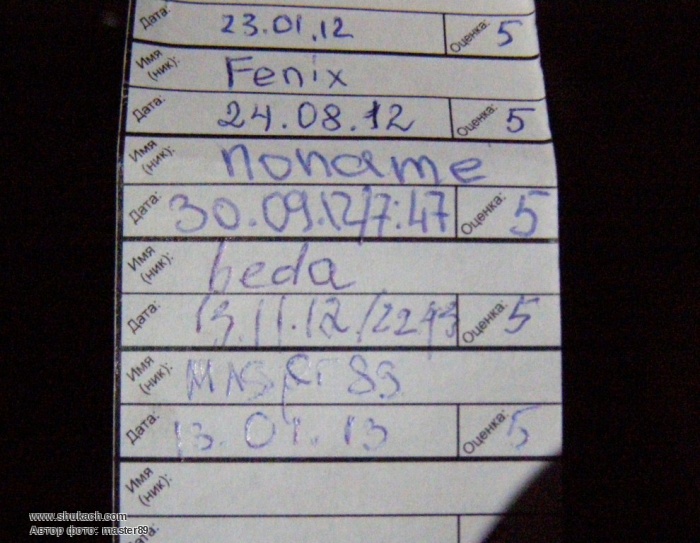 Дата: 23.01.12 Оценка: 5
Имя (ник): Fenix
Дата: 24.08.12 Оценка: 5
Имя (ник): noname
Дата: 30.09.12/7:47 Оценка: 5
Имя (ник): beda
Дата: 13.11.12/2243 Оценка: 5
Имя (ник):
Дата: 13.01.13 Оценка: 5
Имя (ник):
www.shukach.com
Автор фото: master89